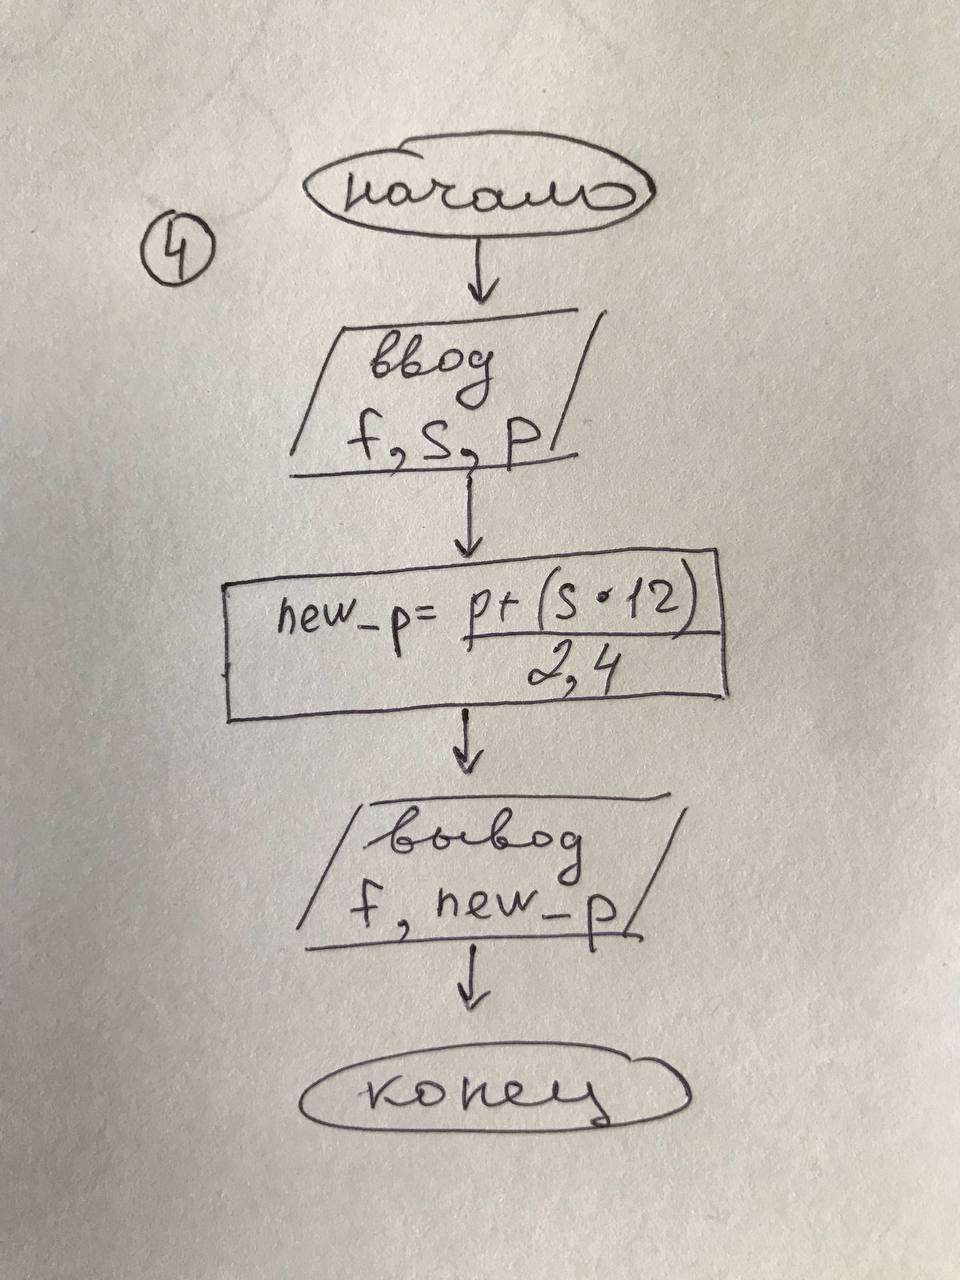 начало
4
ввод
f, s, p
new_p = p + (s • 12)
2,4
вывод
f, new_p
конец